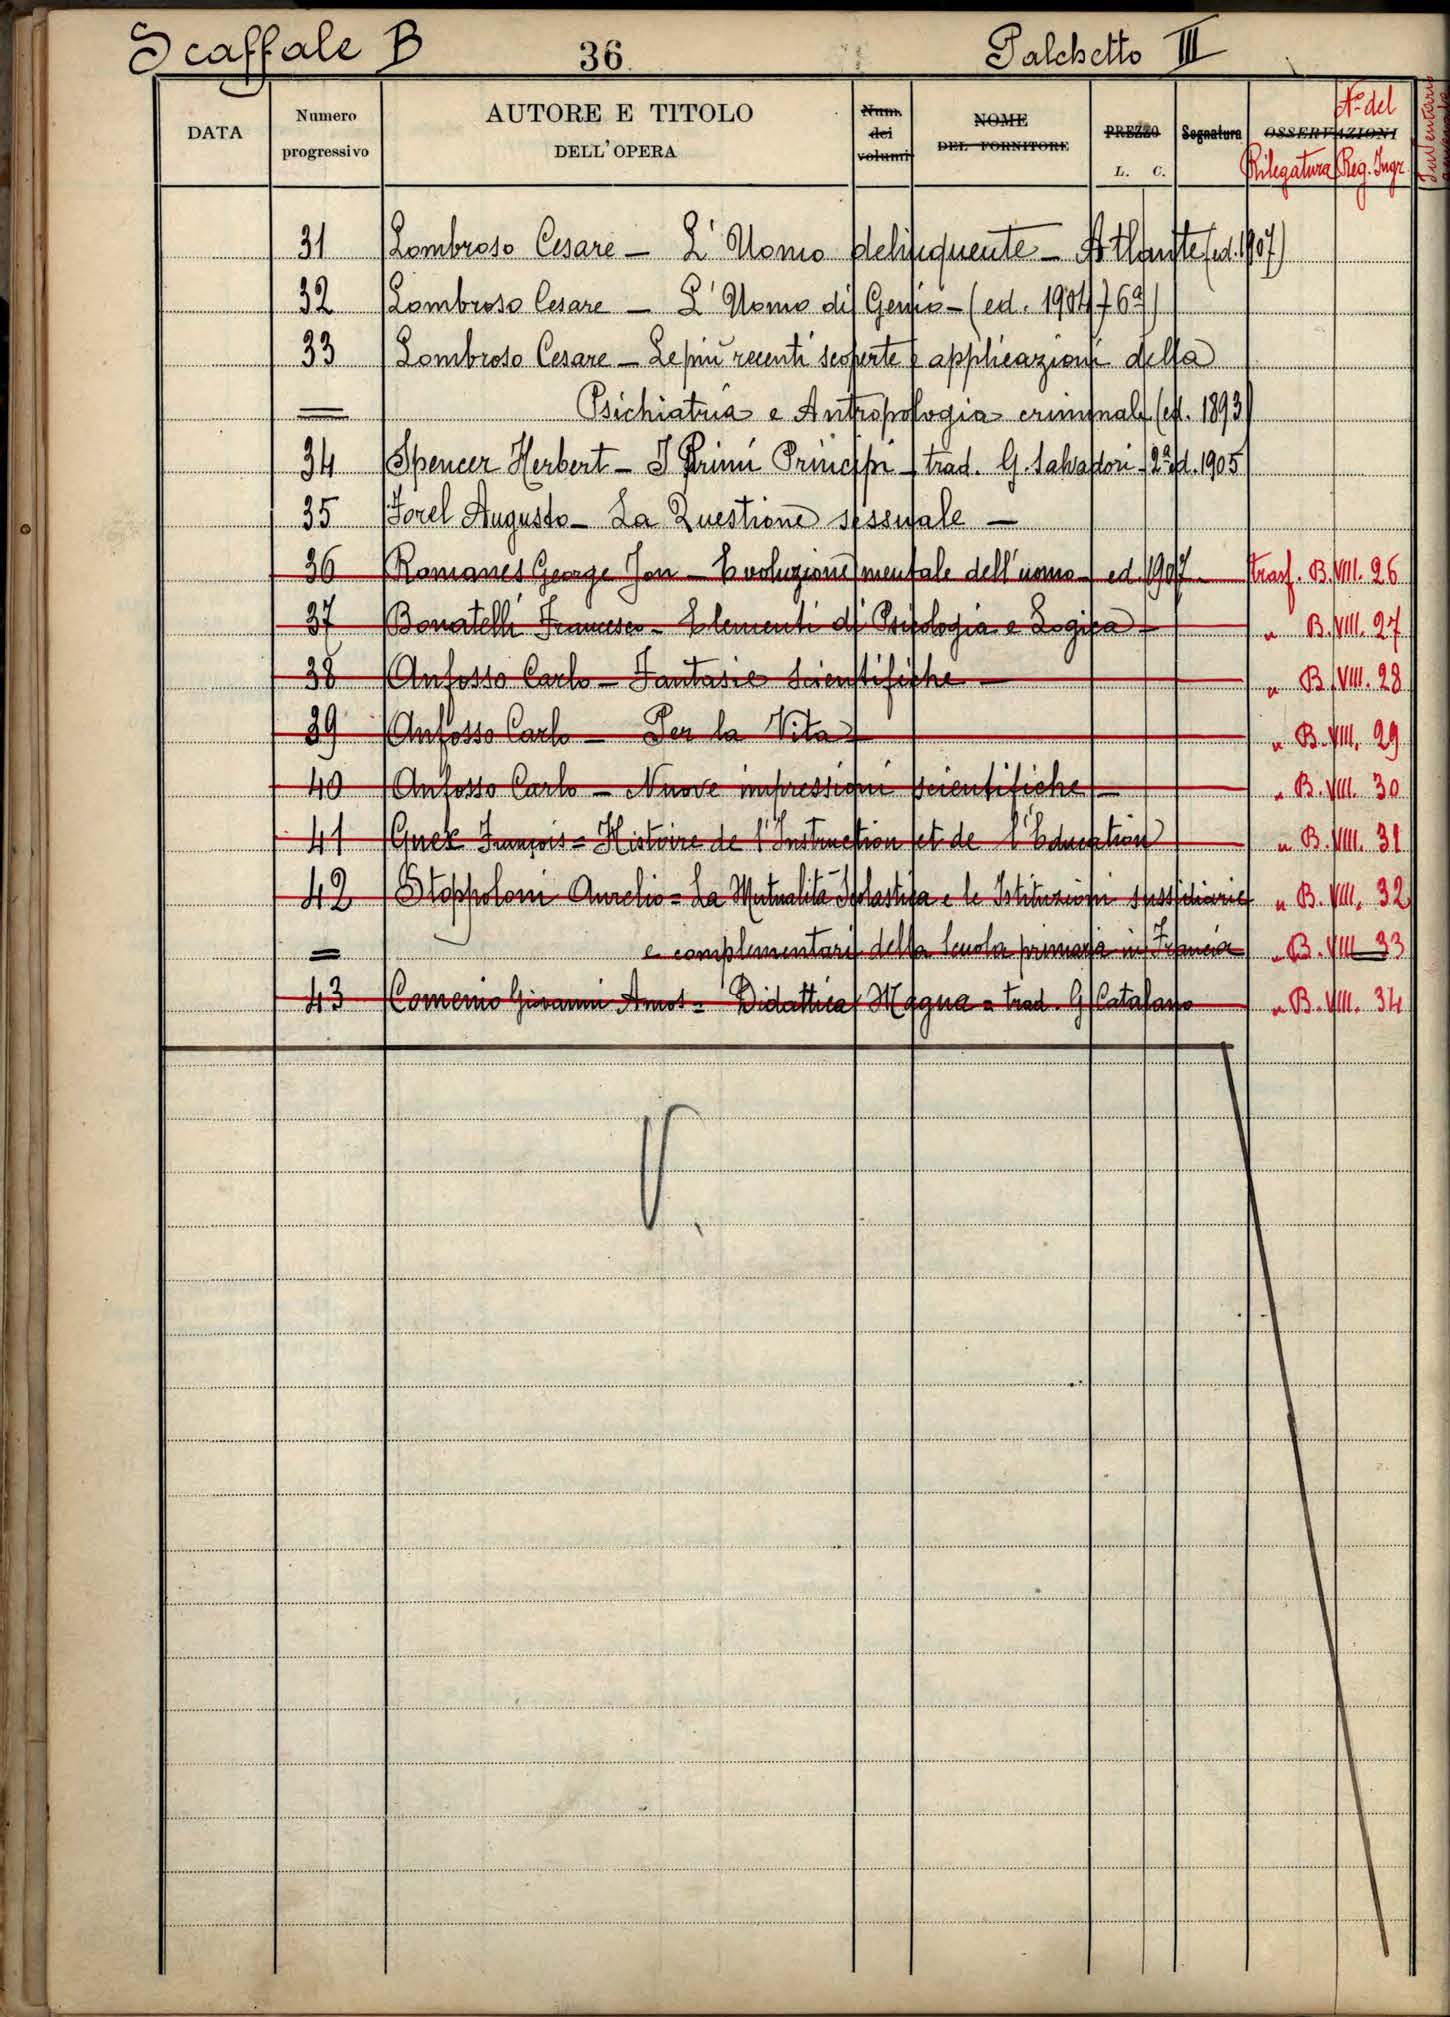 Scaffale B 36 Palchetto III
DATA Numero progressivo AUTORE E TITOLO DELL'OPERA Num. dei volumi NOME DEL FORNITORE PREZZO L. C. Segnatura OSSERVAZIONI
Rilegatura N.º del Reg. Ingr.
31 Lombroso Cesare — L'Uomo delinquente — Atlante (ed. 1907)
32 Lombroso Cesare — L'Uomo di Genio — (ed. 1904 6ª)
33 Lombroso Cesare — Le più recenti scoperte e applicazioni della
= Psichiatria e Antropologia criminale (ed. 1893)
34 Spencer Herbert — I Primi Principi — trad. G. Salvadori — 2ª ed. 1905
35 Forel Augusto — La Questione sessuale —
36 Romanes George Jon — Evoluzione mentale dell'uomo — ed. 1907 — trasf. B. VIII. 26
37 Bonatelli Francesco — Elementi di Psicologia e Logica — " B. VIII. 27
38 Anfosso Carlo — Fantasie scientifiche — " B. VIII. 28
39 Anfosso Carlo — Per la Vita — " B. VIII. 29
40 Anfosso Carlo — Nuove impressioni scientifiche — " B. VIII. 30
41 Guex François = Histoire de l'Instruction et de l'Education " B. VIII. 31
42 Stoppoloni Aurelio = La Mutualità Scolastica e le Istituzioni sussidiarie " B. VIII. 32
= e complementari della Scuola primaria in Francia " B. VIII 33
43 Comenio Giovanni Amos = Didattica Magna = trad. G. Catalano " B. VIII. 34
V.